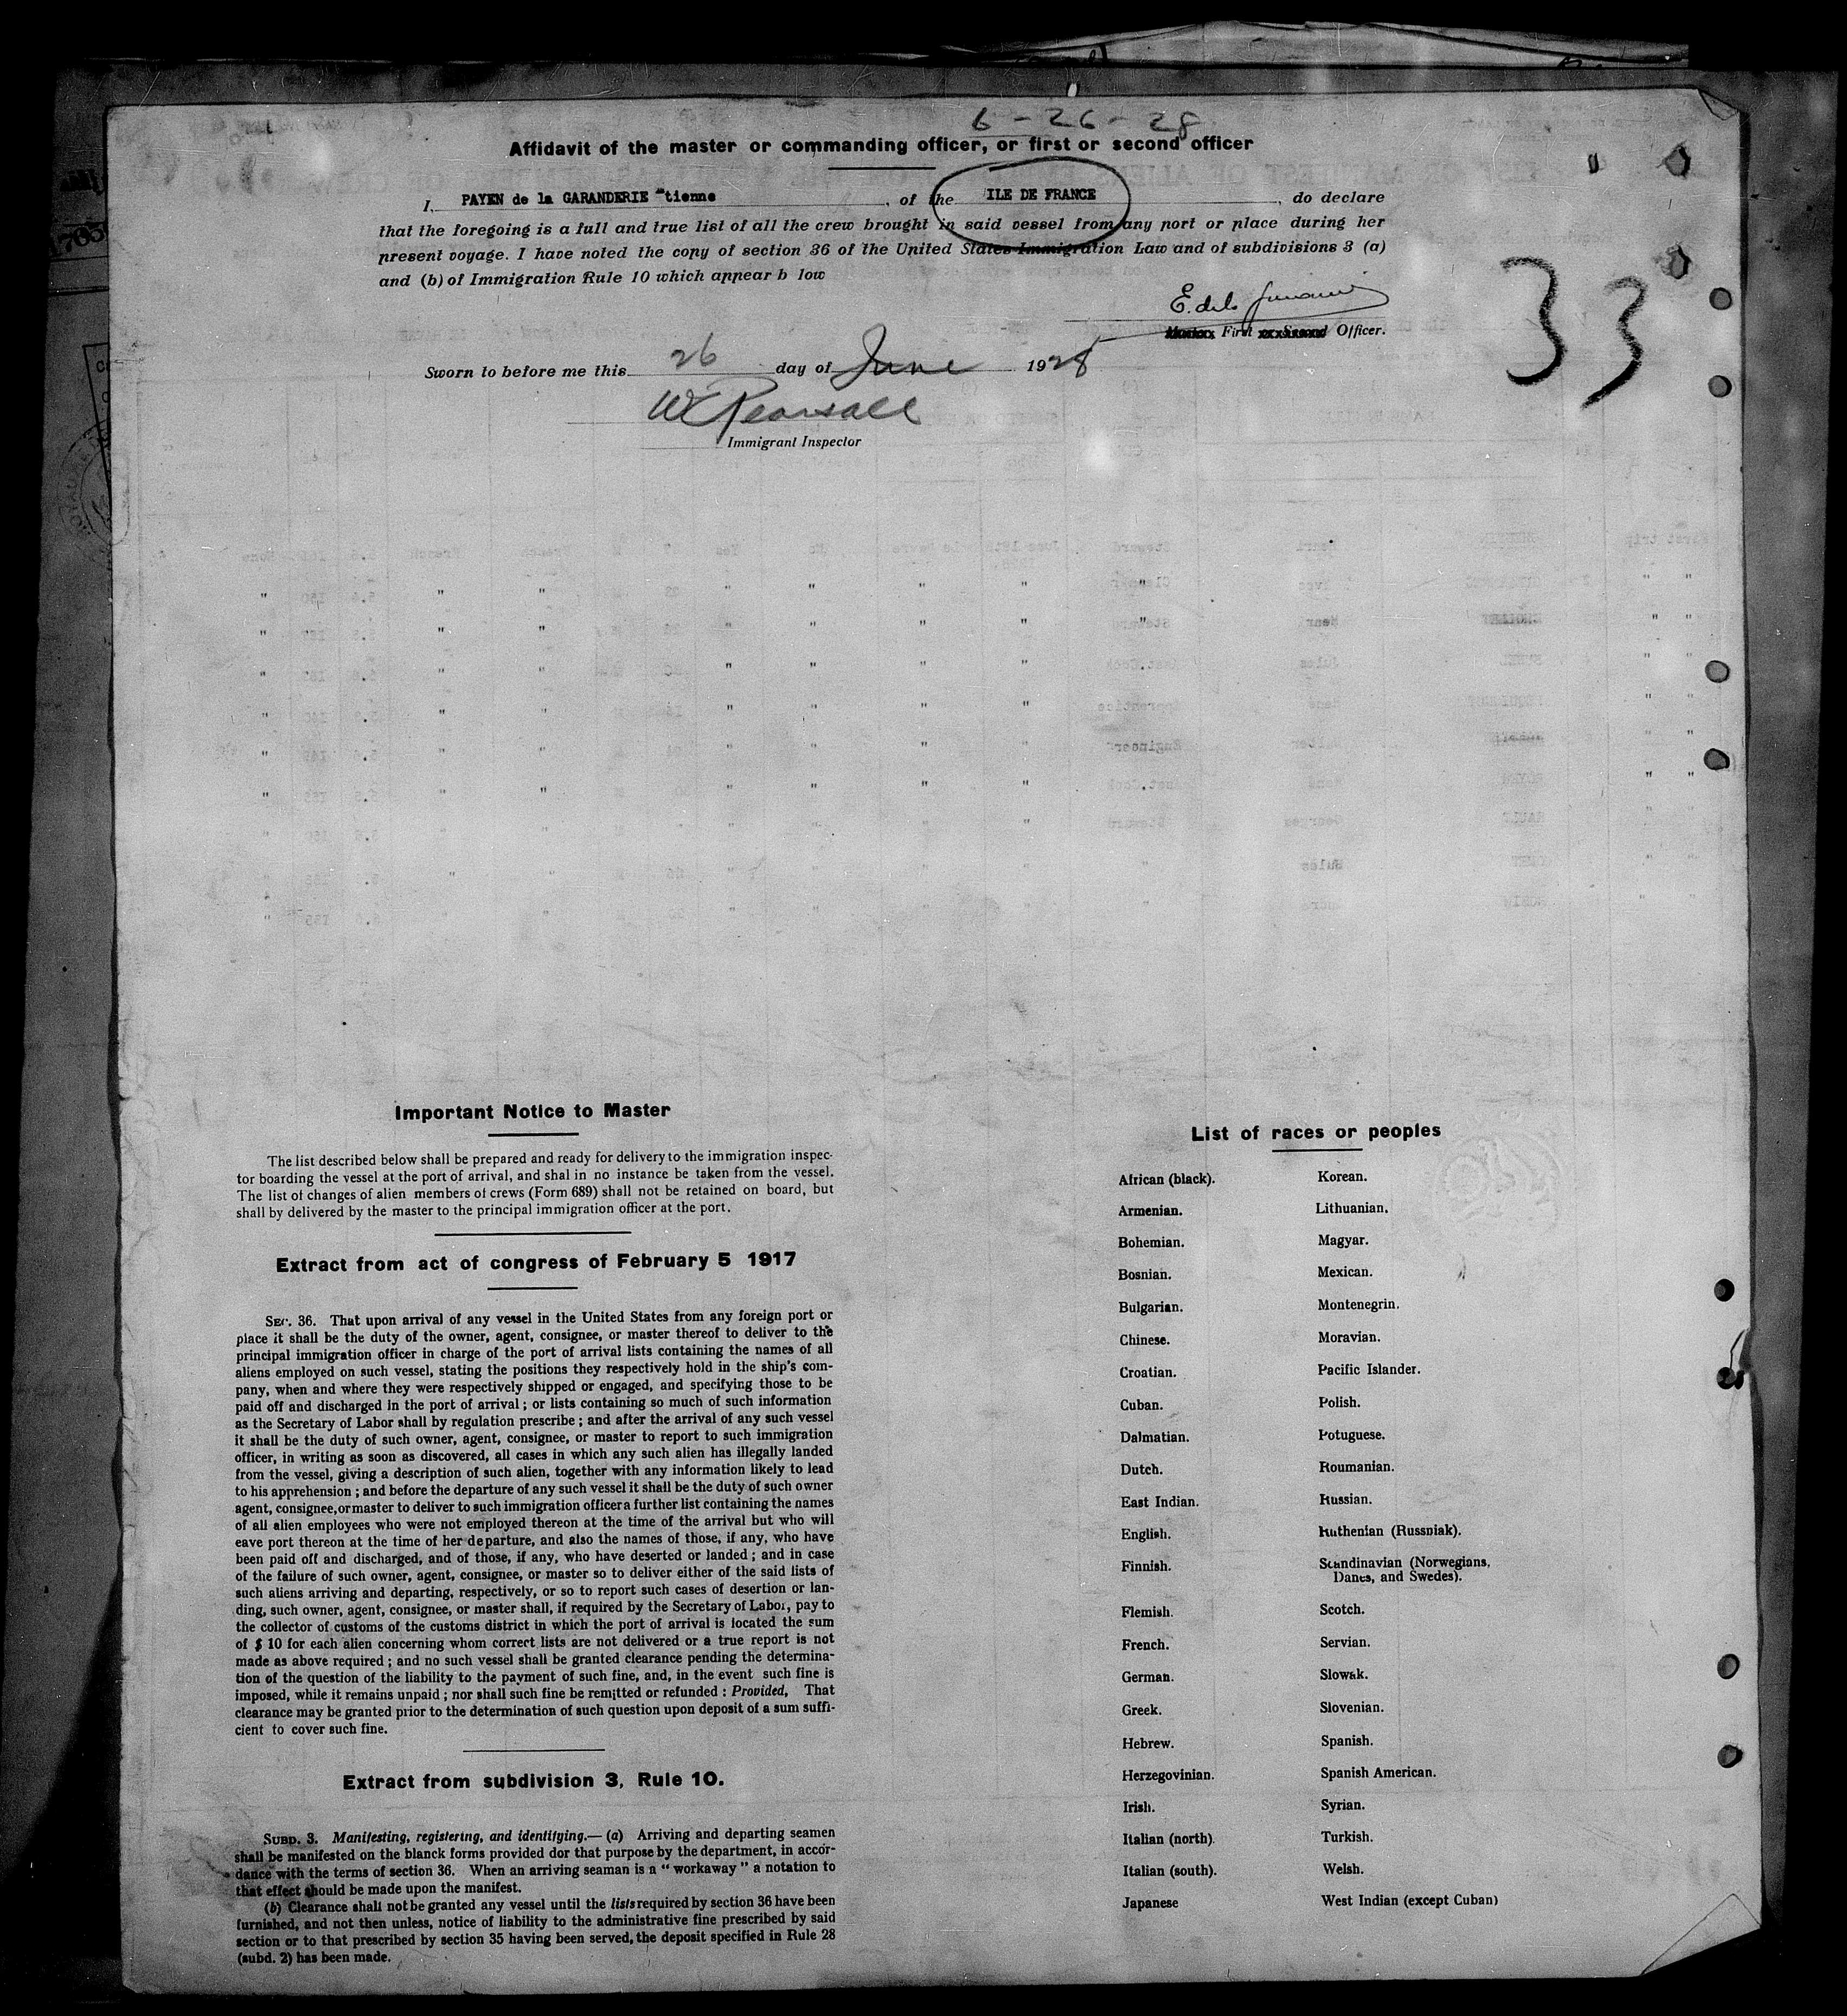 6 - 26 - 28
Affidavit of the master or commanding officer, or first or second officer
I, PAYEN de la GARANDERIE "tienne , of the ILE DE FRANCE , do declare
that the foregoing is a full and true list of all the crew brought in said vessel from any port or place during her
present voyage. I have noted the copy of section 36 of the United States Immigration Law and of subdivisions 3 (a)
and (b) of Immigration Rule 10 which appear b low
33
E. de la
First Officer.
Sworn to before me this 26 day of June 1928
W Pearsall
Immigrant Inspector
Important Notice to Master
The list described below shall be prepared and ready for delivery to the immigration inspec-
tor boarding the vessel at the port of arrival, and shal in no instance be taken from the vessel.
The list of changes of alien members of crews (Form 689) shall not be retained on board, but
shall by delivered by the master to the principal immigration officer at the port.
Extract from act of congress of February 5 1917
SEC. 36. That upon arrival of any vessel in the United States from any foreign port or
place it shall be the duty of the owner, agent, consignee, or master thereof to deliver to the
principal immigration officer in charge of the port of arrival lists containing the names of all
aliens employed on such vessel, stating the positions they respectively hold in the ship's com-
pany, when and where they were respectively shipped or engaged, and specifying those to be
paid off and discharged in the port of arrival ; or lists containing so much of such information
as the Secretary of Labor shall by regulation prescribe ; and after the arrival of any such vessel
it shall be the duty of such owner, agent, consignee, or master to report to such immigration
officer, in writing as soon as discovered, all cases in which any such alien has illegally landed
from the vessel, giving a description of such alien, together with any information likely to lead
to his apprehension ; and before the departure of any such vessel it shall be the duty of such owner
agent, consignee, or master to deliver to such immigration officer a further list containing the names
of all alien employees who were not employed thereon at the time of the arrival but who will
eave port thereon at the time of her departure, and also the names of those, if any, who have
been paid off and discharged, and of those, if any, who have deserted or landed ; and in case
of the failure of such owner, agent, consignee, or master so to deliver either of the said lists of
such aliens arriving and departing, respectively, or so to report such cases of desertion or lan-
ding, such owner, agent, consignee, or master shall, if required by the Secretary of Labor, pay to
the collector of customs of the customs district in which the port of arrival is located the sum
of $ 10 for each alien concerning whom correct lists are not delivered or a true report is not
made as above required ; and no such vessel shall be granted clearance pending the determina-
tion of the question of the liability to the payment of such fine, and, in the event such fine is
imposed, while it remains unpaid ; nor shall such fine be remitted or refunded : Provided, That
clearance may be granted prior to the determination of such question upon deposit of a sum suffi-
cient to cover such fine.
Extract from subdivision 3, Rule 10.
SUBD. 3. Manifesting, registering, and identifying.— (a) Arriving and departing seamen
shall be manifested on the blanck forms provided dor that purpose by the department, in accor-
dance with the terms of section 36. When an arriving seaman is a " workaway " a notation to
that effect should be made upon the manifest.
(b) Clearance shall not be granted any vessel until the lists required by section 36 have been
furnished, and not then unless, notice of liability to the administrative fine prescribed by said
section or to that prescribed by section 35 having been served, the deposit specified in Rule 28
(subd. 2) has been made.
List of races or peoples
African (black).
Armenian.
Bohemian.
Bosnian.
Bulgarian.
Chinese.
Croatian.
Cuban.
Dalmatian.
Dutch.
East Indian.
English.
Finnish.
Flemish.
French.
German.
Greek.
Hebrew.
Herzegovinian.
Irish.
Italian (north).
Italian (south).
Japanese
Korean.
Lithuanian.
Magyar.
Mexican.
Montenegrin.
Moravian.
Pacific Islander.
Polish.
Potuguese.
Roumanian.
Russian.
Ruthenian (Russniak).
Scandinavian (Norwegians,
Danes, and Swedes).
Scotch.
Servian.
Slowak.
Slovenian.
Spanish.
Spanish American.
Syrian.
Turkish.
Welsh.
West Indian (except Cuban)